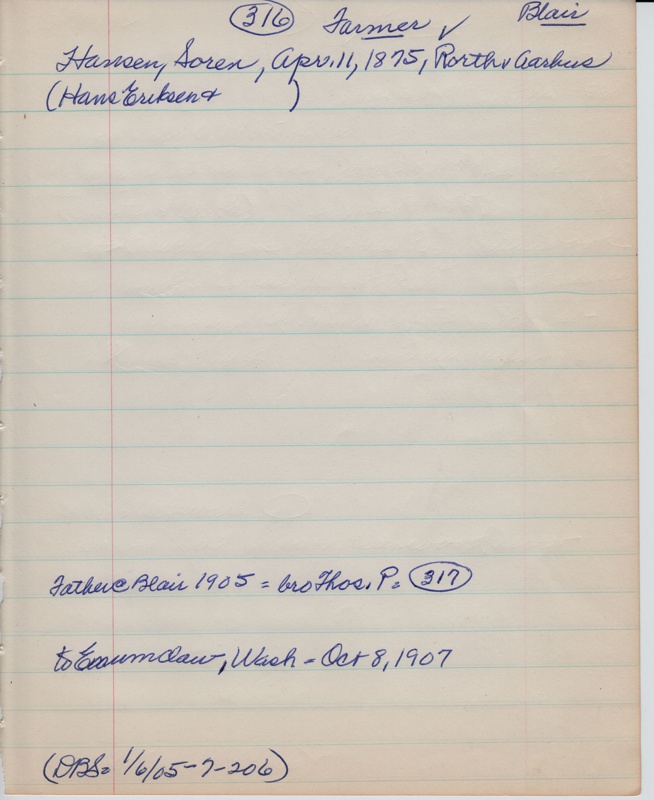 316 Farmer ✓ Blair
Hansen, Soren, Apr. 11, 1875, Rorth v Aarhus
(Hans Eriksen & )
Father @ Blair 1905 = bro Thos. P. = 317
to Enumclaw, Wash - Oct 8, 1907
(DBS = 1/6/05-7-206)